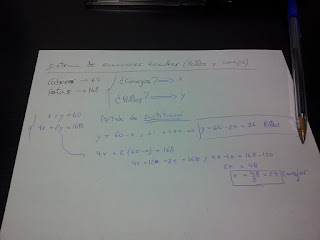 Sistema de ecuaciones lineales (Pollos y conejos)
Cabezas → 60
Patas → 168
¿Conejos? → x
¿Pollos? → y
x + y = 60
4x + 2y = 168
Método de sustitución
y = 60 - x ; y = 60 - 24 = 36 Pollos
4x + 2 (60 - x) = 168
4x + 120 - 2x = 168 ; 4x - 2x = 168 - 120
2x = 48
x = 48/2 = 24 Conejos